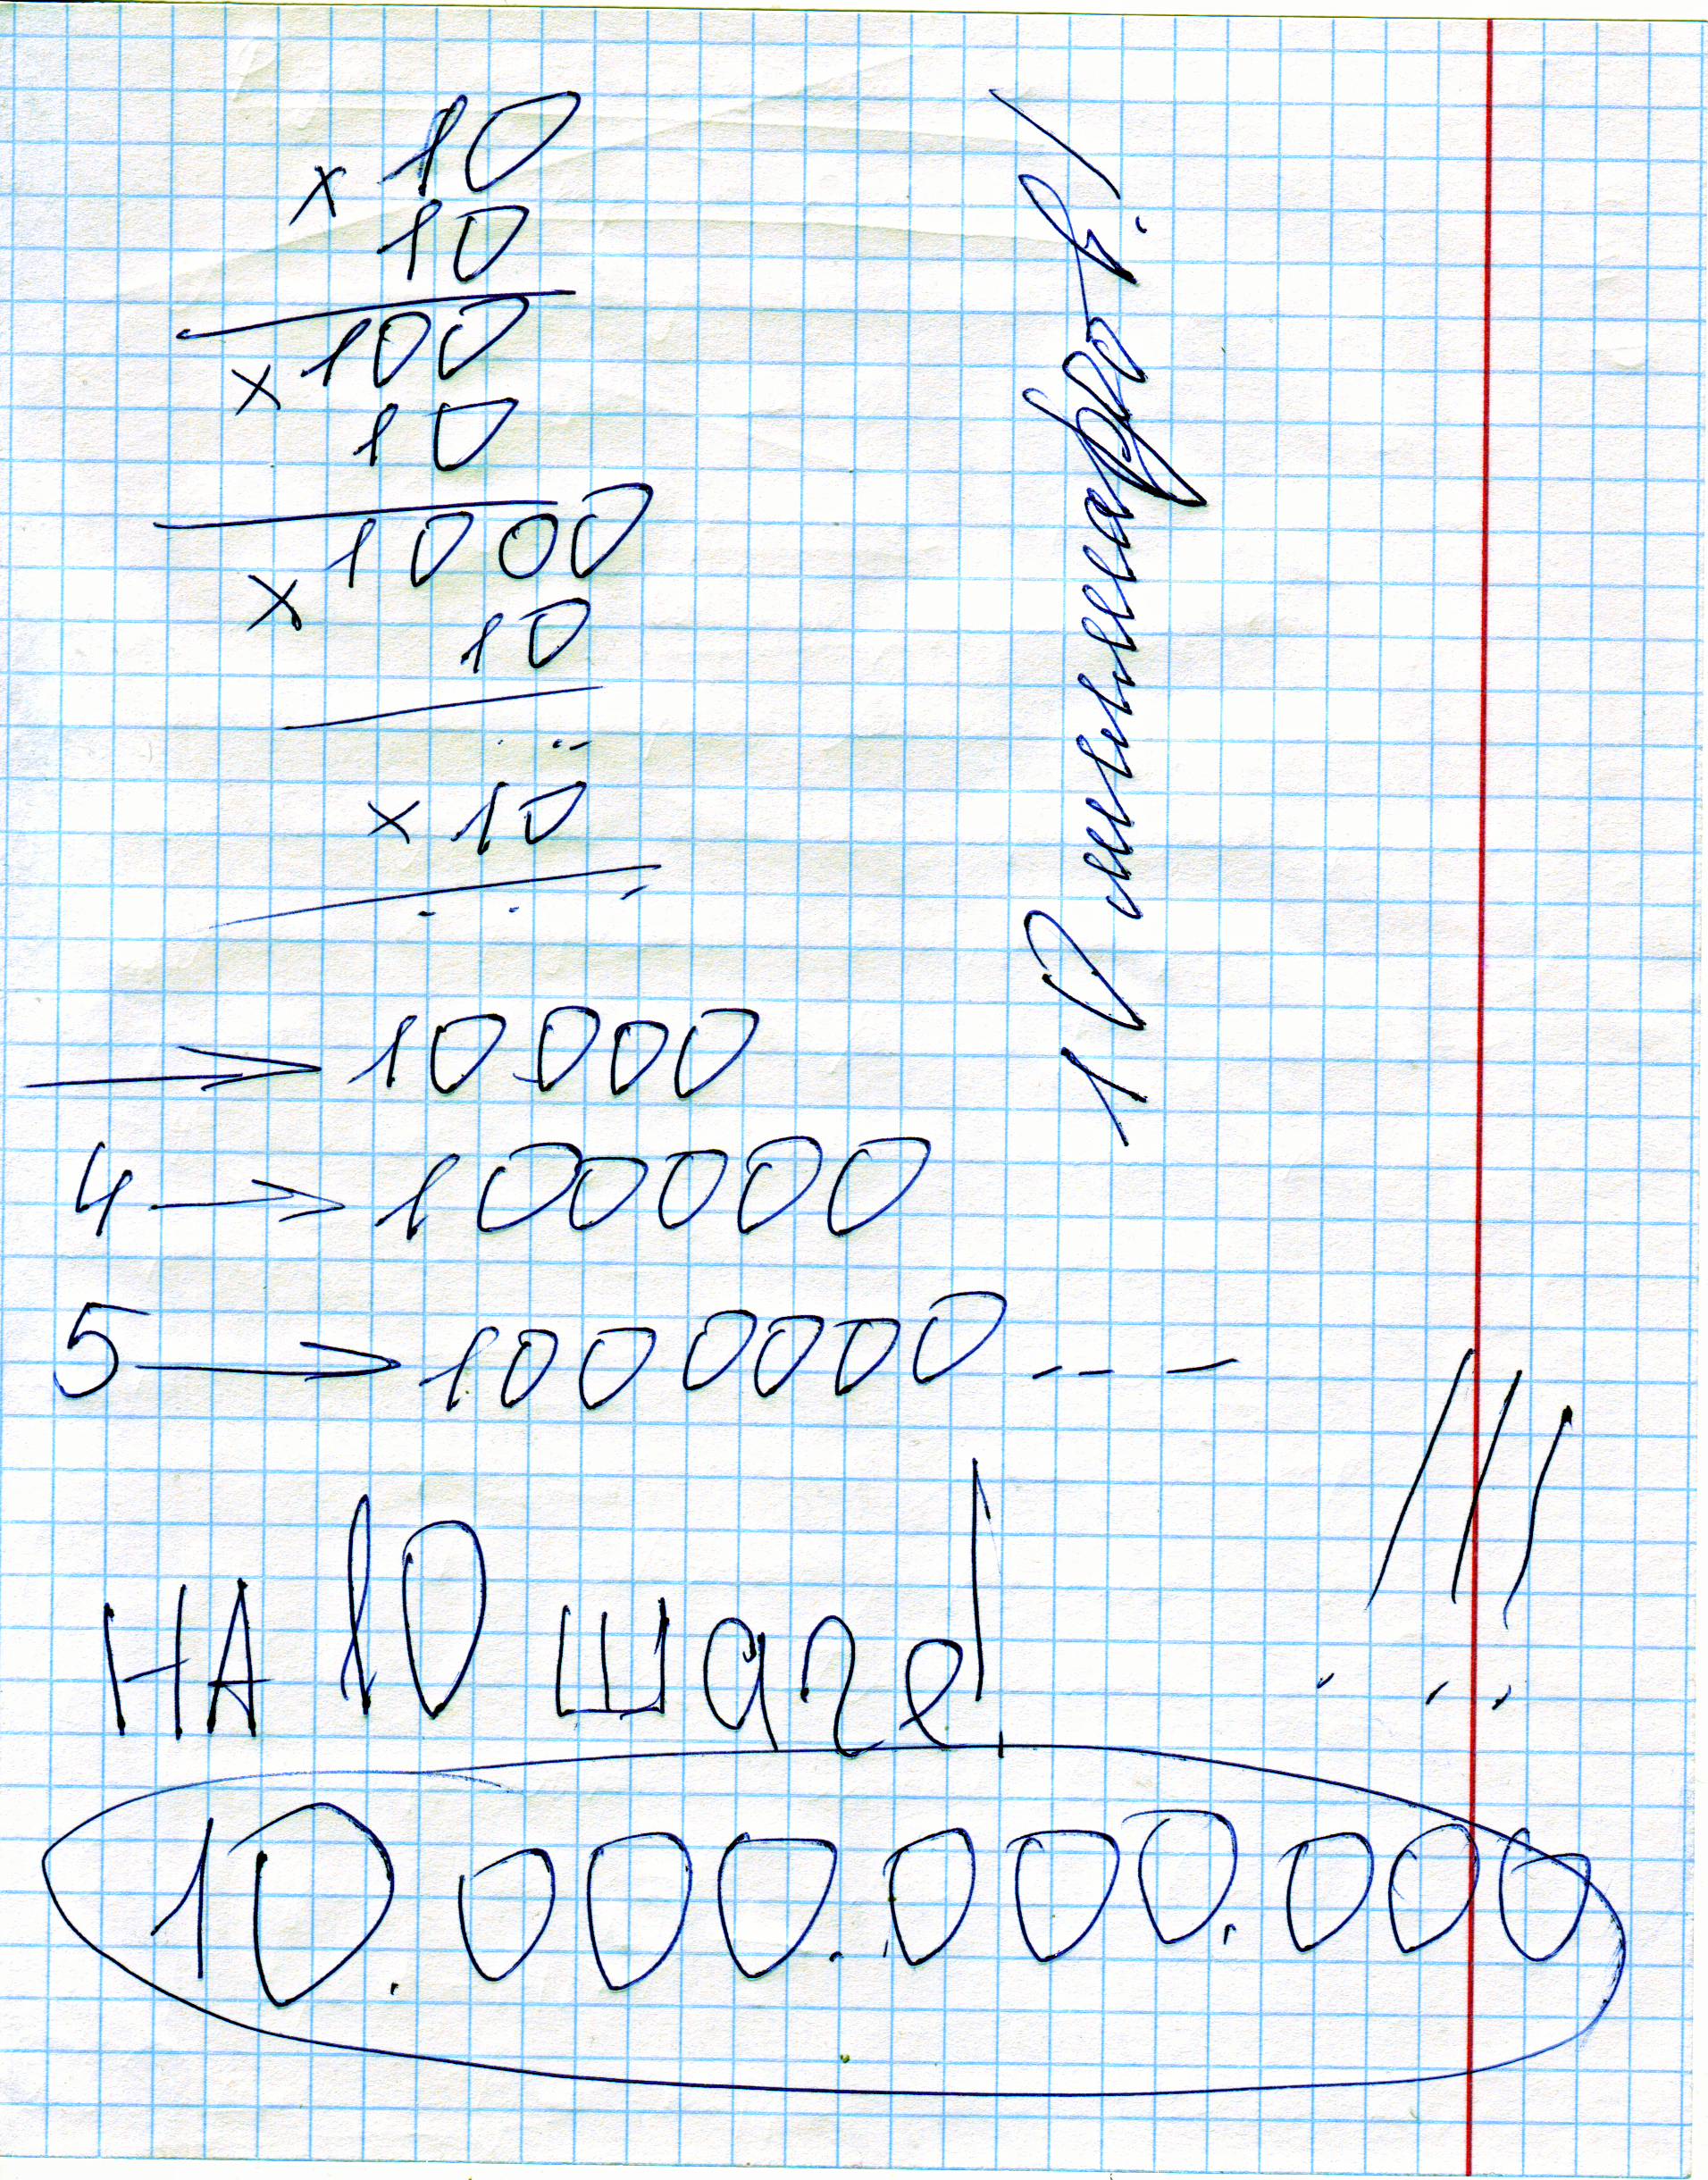 × 10
10
× 100
10
× 1000
10
...
× 10
...
→ 10000
4 → 100000
5 → 1000000 ---
НА 10 шаге!
!!!
10.000.000.000
10 миллиардов!